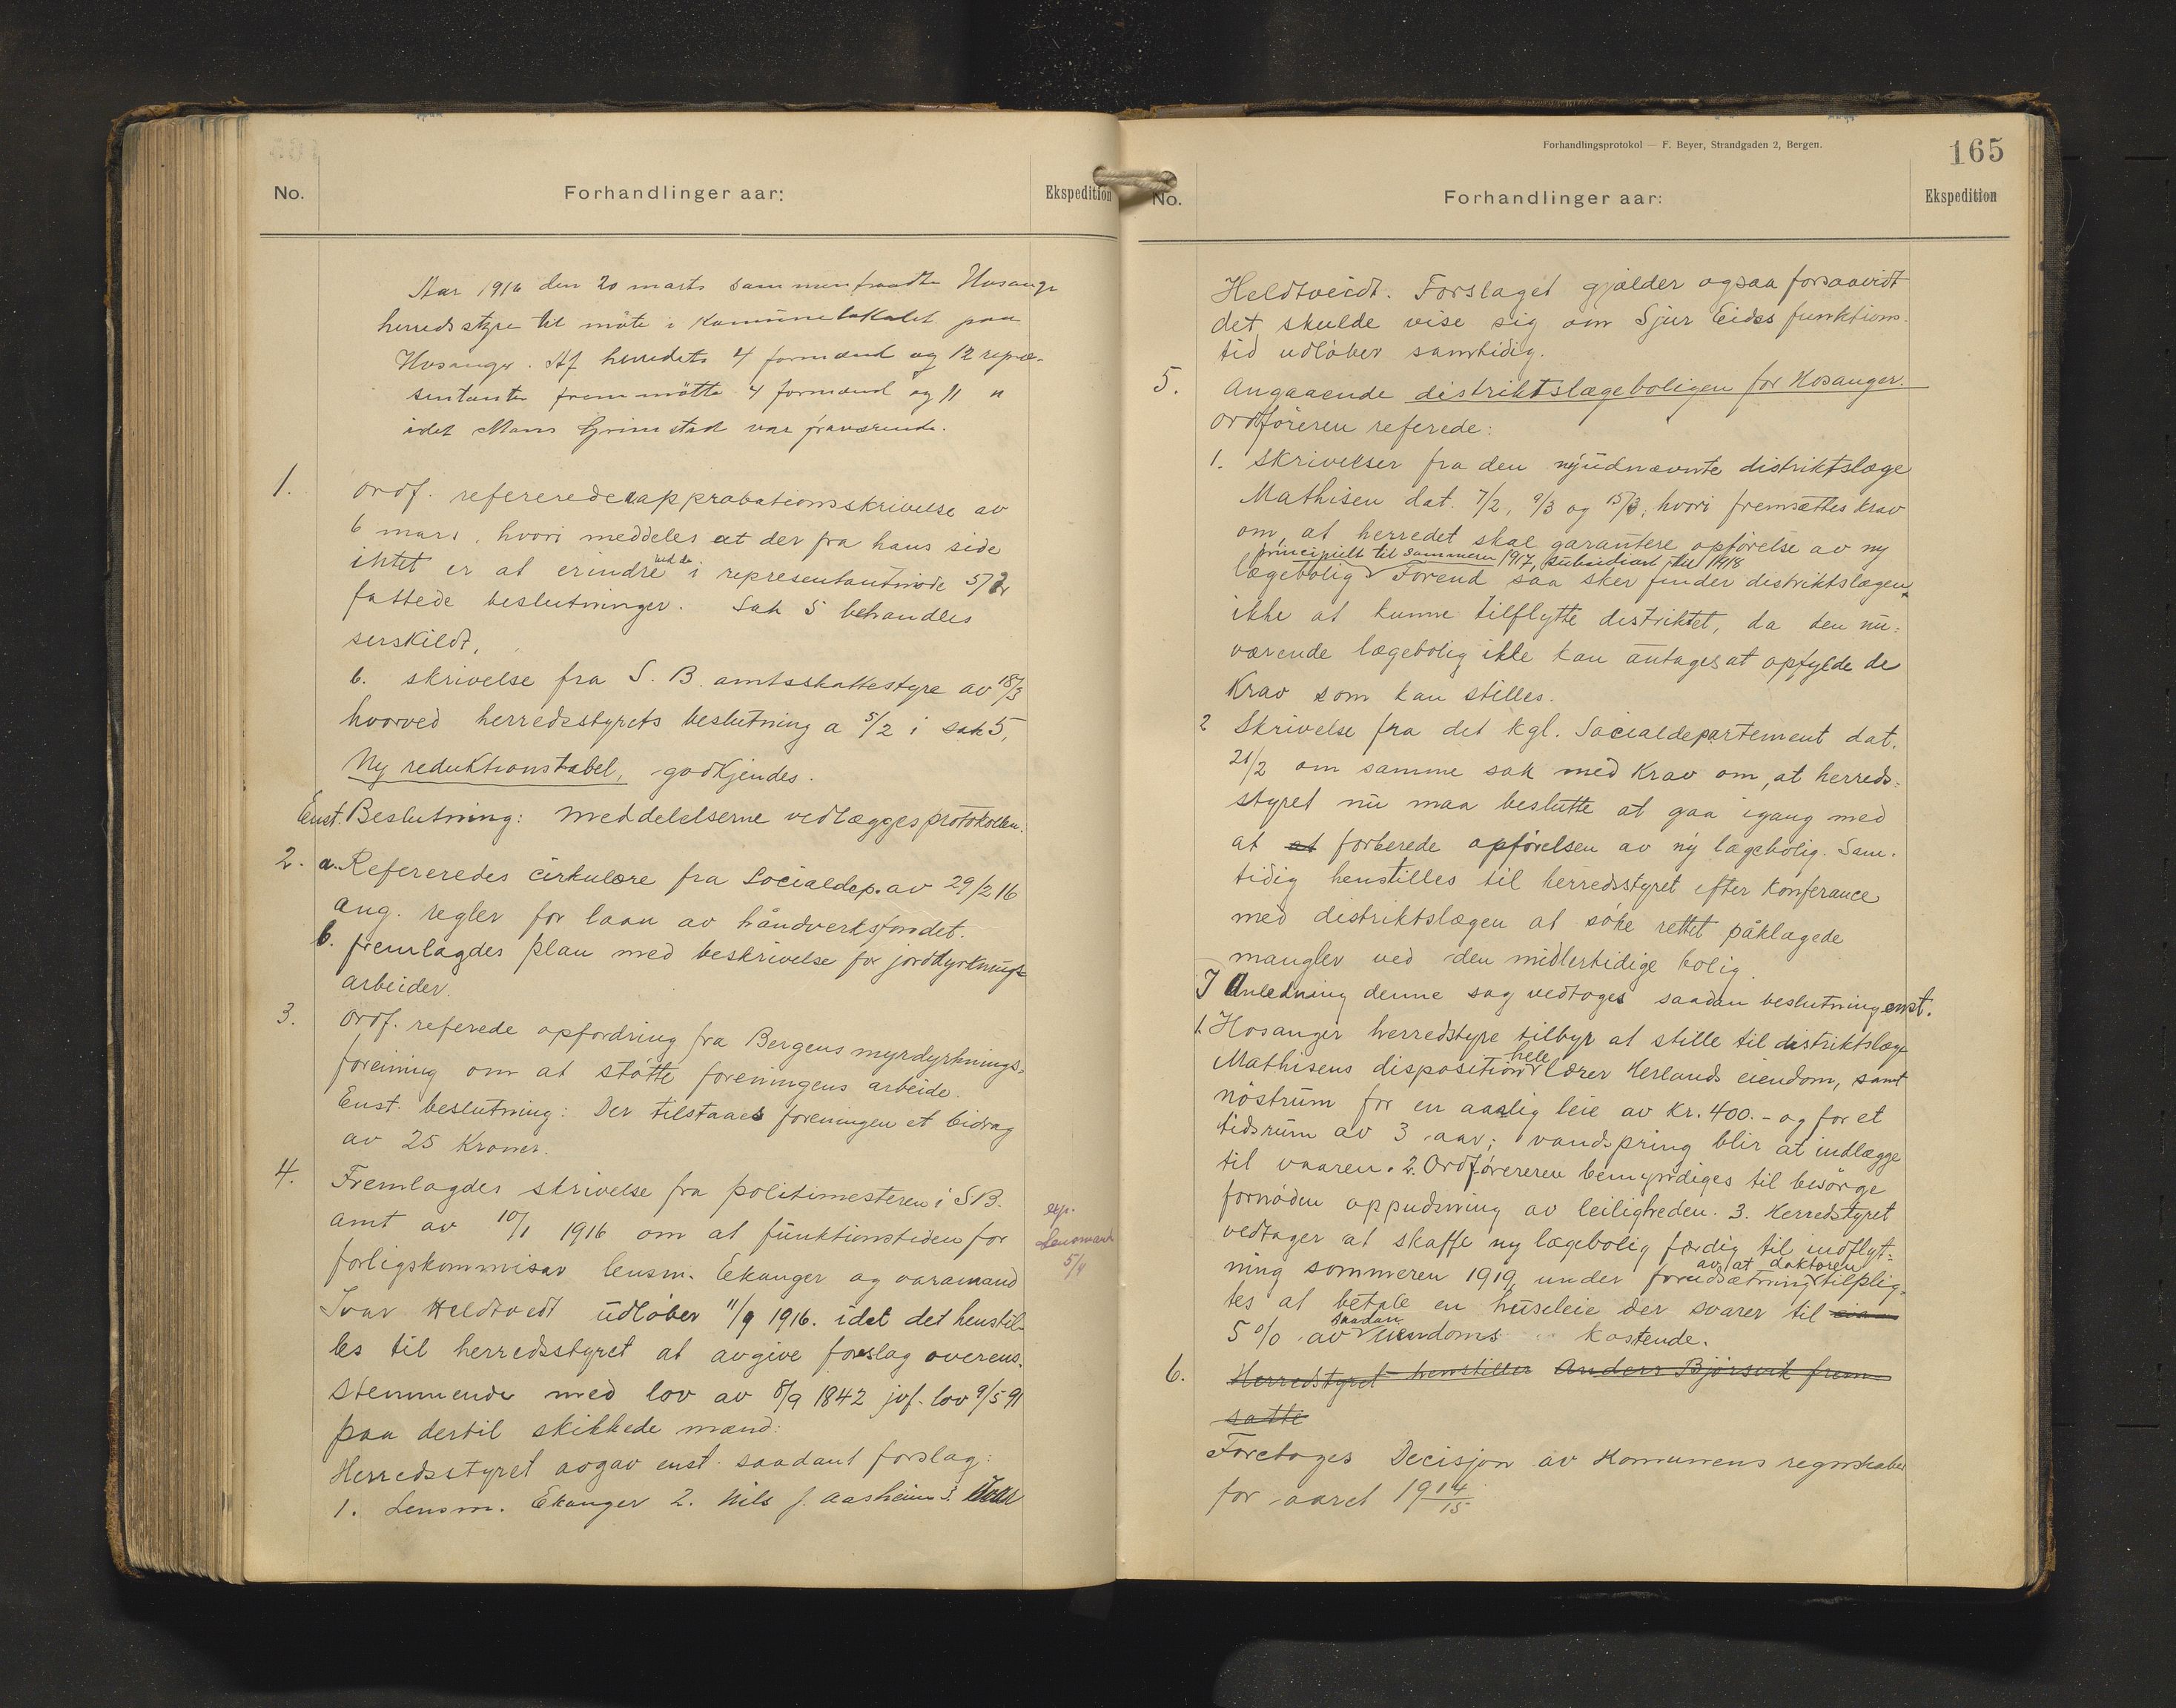 No.
Forhandlinger aar:
Ekspedition
Aar 1916 den 20 marts sammentraadte Hosanger
herredsstyre til møte i Kommunelokalet paa
Hosanger. Af herredets 4 formænd og 12 repræ-
sentanter fremmøtte 4 formænd og 11 "
idet Mons Grimstad var fraværende.
1. Ordf. refererede a. approbationsskrivelse av
6 mars, hvori meddeles at der fra hans side
intet er at erindre ved de i representantmøde 5/2
fattede beslutninger. Sak 5 behandles
serskildt.
b. skrivelse fra S. B. amtsskattestyre av 18/3
hvorved herredsstyrets beslutning a 5/2 i sak 5,
Ny reduktionstabel, godkjendes.
Enst. Beslutning: Meddelelserne vedlægges protokollen.
2. a. Refereredes cirkulære fra Socialdep. av 29/2 16
ang. regler for laan av håndverksfondet.
b. fremlagdes plan med beskrivelse for jorddyrknings-
arbeider.
3. Ordf. referede opfordring fra Bergens myrdyrknings-
forening om at støtte foreningens arbeide.
Enst. beslutning: Der tilstaaes foreningen et bidrag
av 25 Kroner.
4. Fremlagdes skrivelse fra politimesteren i S.B.
amt av 10/1 1916 om at funktionstiden for
forligskommisær lensm. Eekanger og varamand
Ivar Heldtvedt udløber 11/9 1916. idet det henstil-
les til herredsstyret at avgive forslag overens-
stemmende med lov av 8/9 1842 jvf. lov 9/5 91
paa dertil skikkede mænd:
Herredsstyret avgav enst. saadant forslag:
1. Lensm. Ekanger 2. Nils J. Aasheim 3. Ivar
exp.
Lensmand
5/4
Forhandlingsprotokol — F. Beyer, Strandgaden 2, Bergen.
165
No.
Forhandlinger aar:
Ekspedition
Heldtveidt. Forslaget gjælder ogsaa forsaavidt
det skulde vise sig om Sjur Eides funktions-
tid udløber samtidig.
5. Angaaende distriktslægeboligen for Hosanger.
Ordføreren referede:
1. skrivelser fra den nyudnævnte distriktslæge
Mathisen dat. 7/2, 9/3 og 15/3, hvori fremsættes krav
om, at herredet skal garantere opførelse av ny
principielt til sommeren 1917, subsidiært til 1918
lægebolig. Forend saa sker finder distriktslægen
ikke at kunne tilflytte distriktet, da den nu-
værende lægebolig ikke kan antages at opfylde de
Krav som kan stilles.
2 Skrivelse fra det kgl. Socialdepartement dat.
21/2 om samme sak med Krav om, at herreds-
styret nu maa beslutte at gaa igang med
at at forberede opførelsen av ny lægebolig. Sam-
tidig henstilles til herredsstyret efter konferance
med distriktslægen at søke rettet påklagede
mangler ved den midlertidige bolig.
I Anledning denne sag vedtoges saadan beslutning enst.
1. Hosanger herredstyre tilbyr at stille til distriktslæge
Mathisens disposition hele Lærer Herlands eiendom, samt
nøstrum for en aarlig leie av kr. 400.- og for et
tidsrum av 3 aar; vandspring blir at indlægge
til vaaren. 2. Ordførereren bemyndiges til besørge
fornøden oppudsning av leiligheden. 3. Herredstyret
vedtager at skaffe ny lægebolig færdig til indflyt-
ning sommeren 1919, under forudsætning av, at doktoren tilplig-
tes at betale en husleie der svarer til
5% av saadan eiendoms kostende.
6. Herredstyret henstiller Anders Bjørsvik frem-
satte
Foretoges Decisjon av Komunens regnskaber
for aaret 1914/15